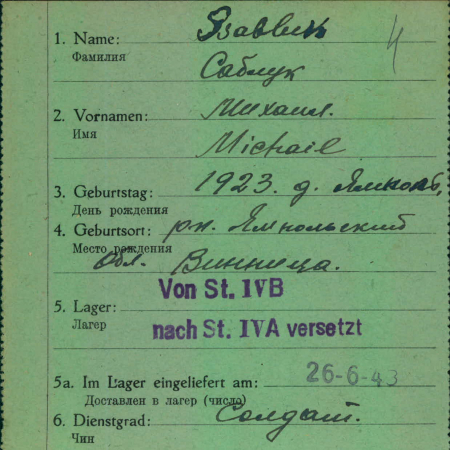 1. Name:
4
Фамилия
Саблук
2. Vornamen: Михаил.
Имя
Michail
3. Geburtstag: 1923. д. Ямполь,
День рождения
4. Geburtsort: рн. Ямпольский
Место рождения
обл. Винница.
Von St. IVB
5. Lager:
Лагер
nach St. IVA versetzt
5a. Im Lager eingeliefert am: 26-6-43
Доставлен в лагер (число)
6. Dienstgrad: Солдат.
Чин